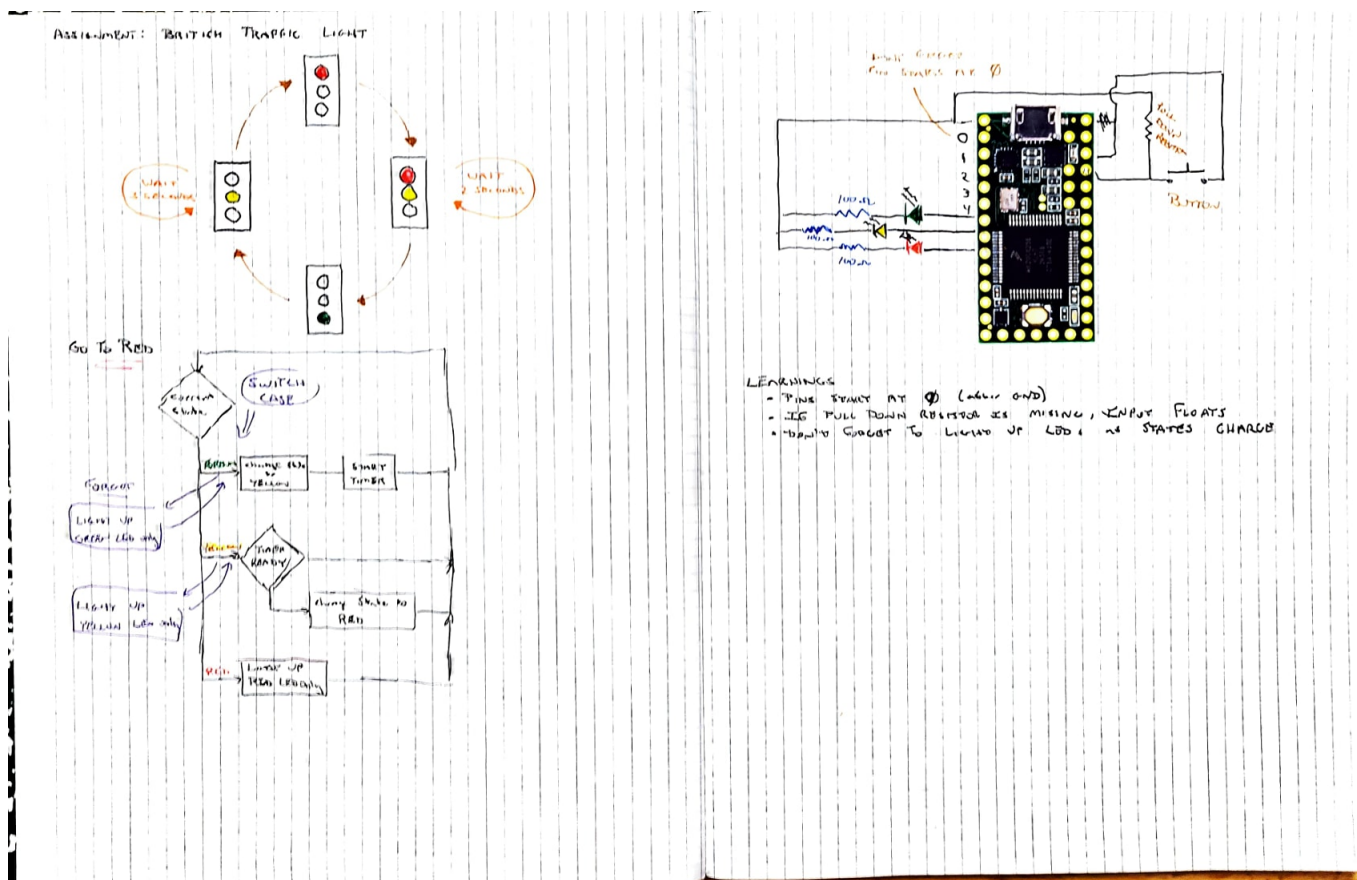 ASSIGNMENT: BRITISH TRAFFIC LIGHT
WAIT
WAIT
2 SECONDS
GO TO RED
Current
State
SWITCH
CASE
GREEN
YELLOW
START
TIMER
FORGOT
LIGHT UP
GREEN LED only
TIMER
READY
LIGHT UP
YELLOW LED only
RED
RED
LIGHT UP
RED LED only
PIN STARTS AT Ø
0
1
2
3
4
100Ω
100Ω
100Ω
PULL
DOWN
BUTTON
LEARNINGS
- PINS START AT Ø (after GND)
- IF PULL DOWN RESISTOR IS MISING, INPUT FLOATS
- DON'T FORGET TO LIGHT UP LEDs as STATES CHARGE